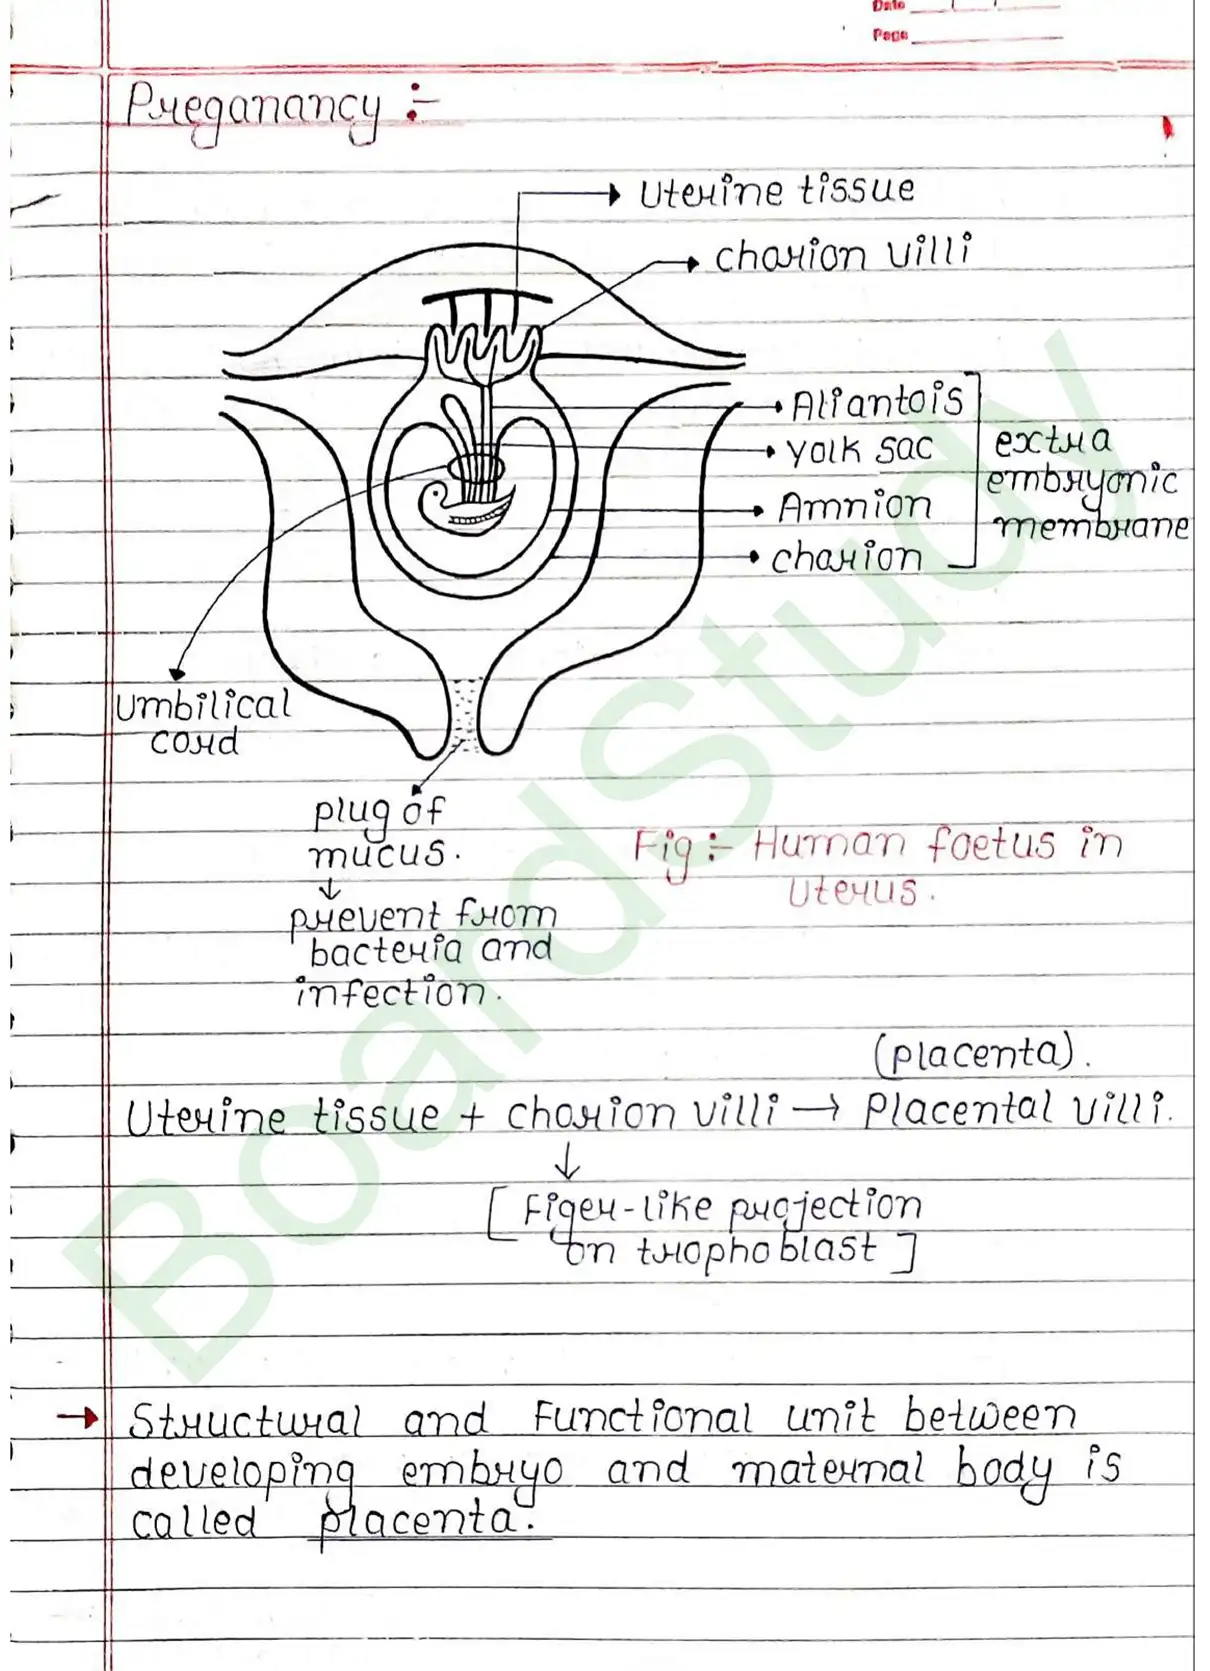 Date
Page
Preganancy :-
Uterine tissue
chorion villi
Allantois
yolk sac
Amnion
chorion
extra
embryonic
membrane
Umbilical
cord
plug of
mucus.
↓
prevent from
bacteria and
infection.
Fig :- Human foetus in
Uterus.
(placenta).
Uterine tissue + chorion villi → Placental villi.
↓
[ Figer-like projection
on trophoblast ]
→ Structural and Functional unit between
developing embryo and maternal body is
called placenta.
BoardStudy